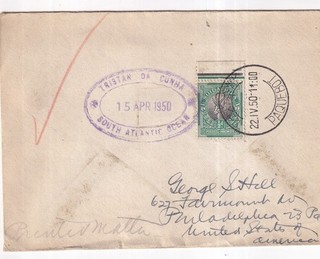 TRISTAN DA CUNHA
15 APR 1950
SOUTH ATLANTIC OCEAN
22.IV.50-11:00
PAQUEBOT
George S Hell
627 Fairmount Av
Philadelphia 23 Pa
United States of
America
Printed Matter